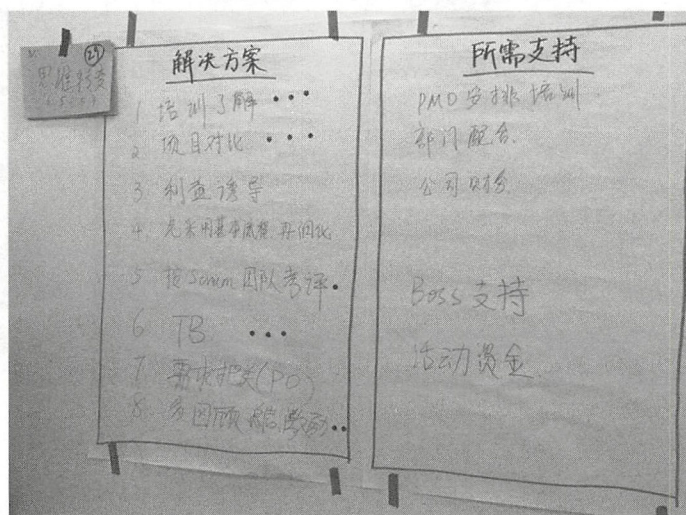 29
思维转变
解决方案
1 培训了解
2 项目对比
3 利益诱导
4 先采用基本流程 再细化
5 按Scrum团队考评
6 TB
7 需求把关(PO)
8 多回顾
所需支持
PMO安排培训
部门配合
公司财务
Boss支持
活动资金